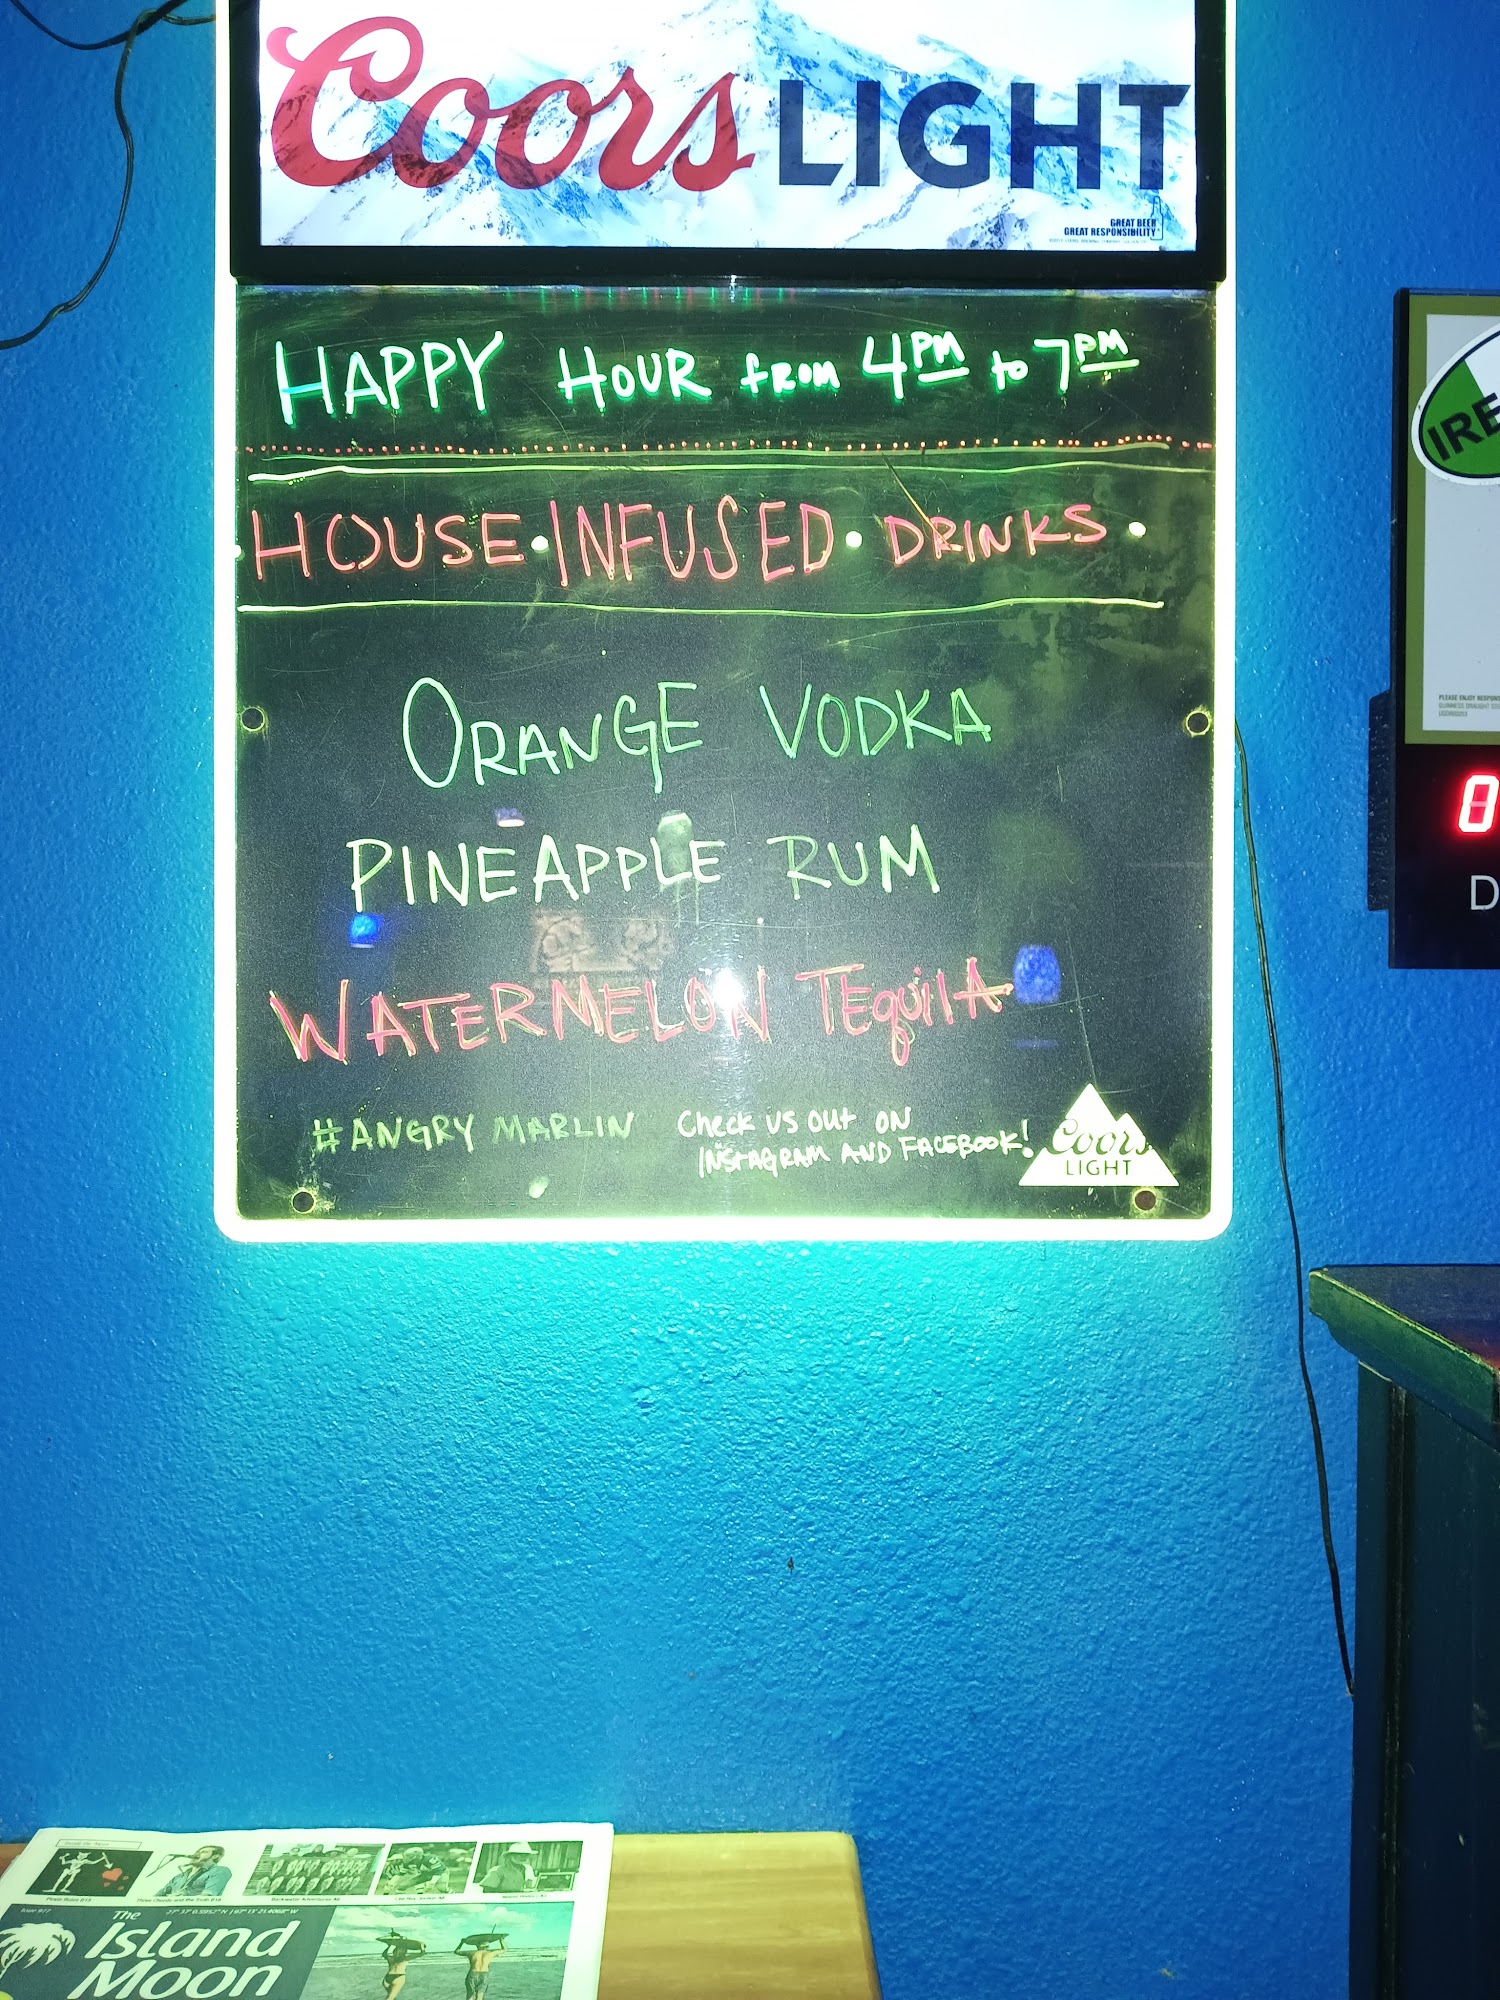 Coors LIGHT
GREAT BEER
GREAT RESPONSIBILITY
HAPPY HOUR from 4PM to 7PM
HOUSE·INFUSED·DRINKS·
ORANGE VODKA
PINEAPPLE RUM
WATERMELON TEquilA
#ANGRY MARLIN
Check us out on
INSTAGRAM AND FACEBOOK!
Coors
LIGHT
IRE
PLEASE ENJOY RESPONS
GUINNESS DRAUGHT
0
D
The
Island
Moon